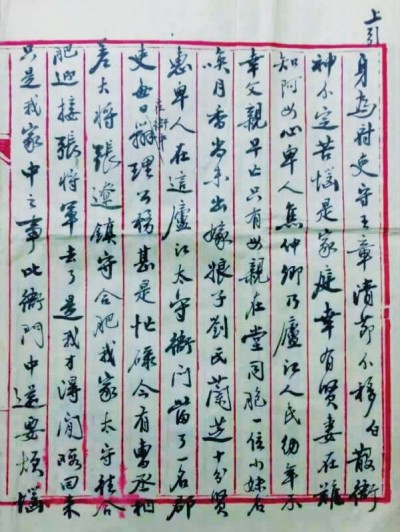 上引
身為府吏守王章清節不移白散衙
神不定苦惱是家庭幸有賢妻在難
知阿母心卑人焦仲卿乃廬江人氏幼年不
幸父親早亡只有母親在堂同胞一位小妹名
喚月香尚未出嫁娘子劉氏蘭芝十分賢
惠卑人在這廬江太守衙門當了一名郡
吏每日在衙中辦理公務甚是忙碌今有曹丞相
差大將張遼鎮守合肥我家太守往合
肥迎接張將軍去了是我才得閒暇回來
只是我家中之事比衙門中還要煩惱